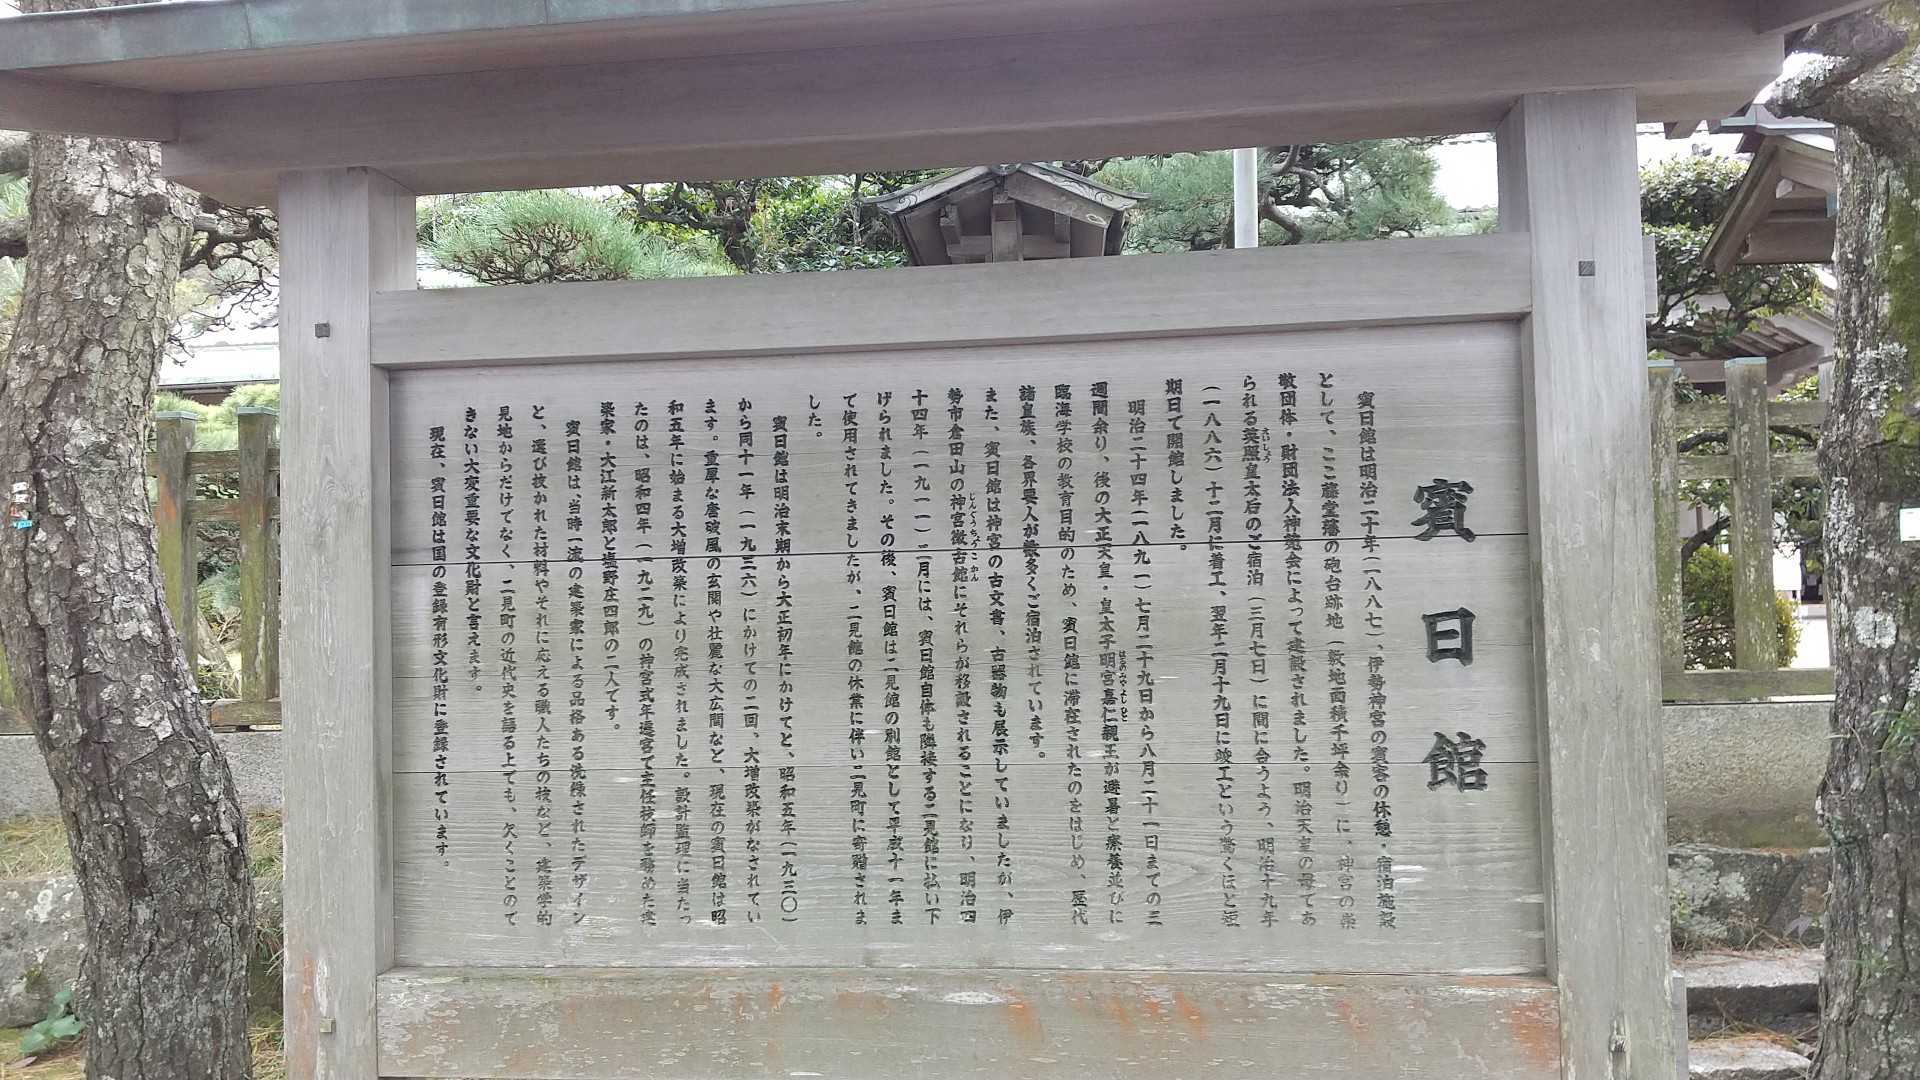 賓日館
賓日館は明治二十年（一八八七）、伊勢神宮の賓客の休憩・宿泊施設
として、ここ藤堂藩の砲台跡地（敷地面積千坪余り）に、神宮の崇
敬団体・財団法人神苑会によって建設されました。明治天皇の母であ
られる英照皇太后のご宿泊（三月七日）に間に合うよう、明治十九年
えいしょう
（一八八六）十二月に着工、翌年二月十九日に竣工という驚くほど短
期日で開館しました。
明治二十四年（一八九一）七月二十九日から八月二十一日までの三
週間余り、後の大正天皇・皇太子明宮嘉仁親王が避暑と療養並びに
はるのみやよしひと
臨海学校の教育目的のため、賓日館に滞在されたのをはじめ、歴代
諸皇族、各界要人が数多くご宿泊されています。
また、賓日館は神宮の古文書、古器物も展示していましたが、伊
勢市倉田山の神宮徴古館にそれらが移設されることになり、明治四
じんぐうちょうこかん
十四年（一九一一）二月には、賓日館自体も隣接する二見館に払い下
げられました。その後、賓日館は二見館の別館として平成十一年ま
で使用されてきましたが、二見館の休業に伴い二見町に寄贈されま
した。
賓日館は明治末期から大正初年にかけてと、昭和五年（一九三〇）
から同十一年（一九三六）にかけての二回、大増改築がなされてい
ます。重厚な唐破風の玄関や壮麗な大広間など、現在の賓日館は昭
和五年に始まる大増改築により完成されました。設計監理に当たっ
たのは、昭和四年（一九二九）の神宮式年遷宮で主任技師を務めた建
築家・大江新太郎と塩野庄四郎の二人です。
賓日館は、当時一流の建築家による品格ある洗練されたデザイン
と、選び抜かれた材料やそれに応える職人たちの技など、建築学的
見地からだけでなく、二見町の近代史を語る上でも、欠くことので
きない大変重要な文化財と言えます。
現在、賓日館は国の登録有形文化財に登録されています。